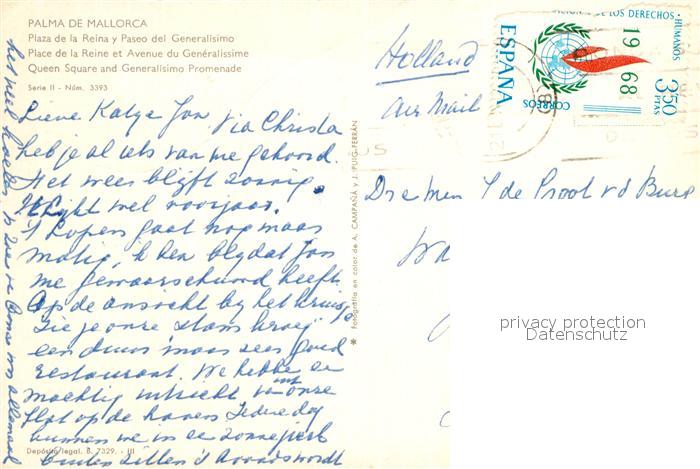 PALMA DE MALLORCA
Plaza de la Reina y Paseo del Generalísimo
Place de la Reine et Avenue du Genéralissime
Queen Square and Generalísimo Promenade
Serie II - Núm. 3393
Lieve Jan Via Christa
heb je al iets van me gehoord.
Het weer blijft zonnig.
'T lykt wel voorjaar.
't Lopen gaat nog maar
matig, ik ben bly dat Jan
me gewaarschuwd heeft.
Op de ansicht by het kruisje
zie je onze
een duur maar zeer goed
restaurant. We hebben een
machtig uitzicht van uit onze
flat op de haven Iedere dag
kunnen we in de zonnetje
buiten zitten 's avonds wordt
het wel
allemaal
Depósito legal. B. 7329. - III
✱ Fotografía en color de A. CAMPAÑÁ y J. PUIG-FERRÁN
Holland
Air Mail
DE LOS DERECHOS HUMANOS
1968
ESPAÑA
CORREOS
3,50
PTAS
de Proot v d Burg
privacy protection
Datenschutz